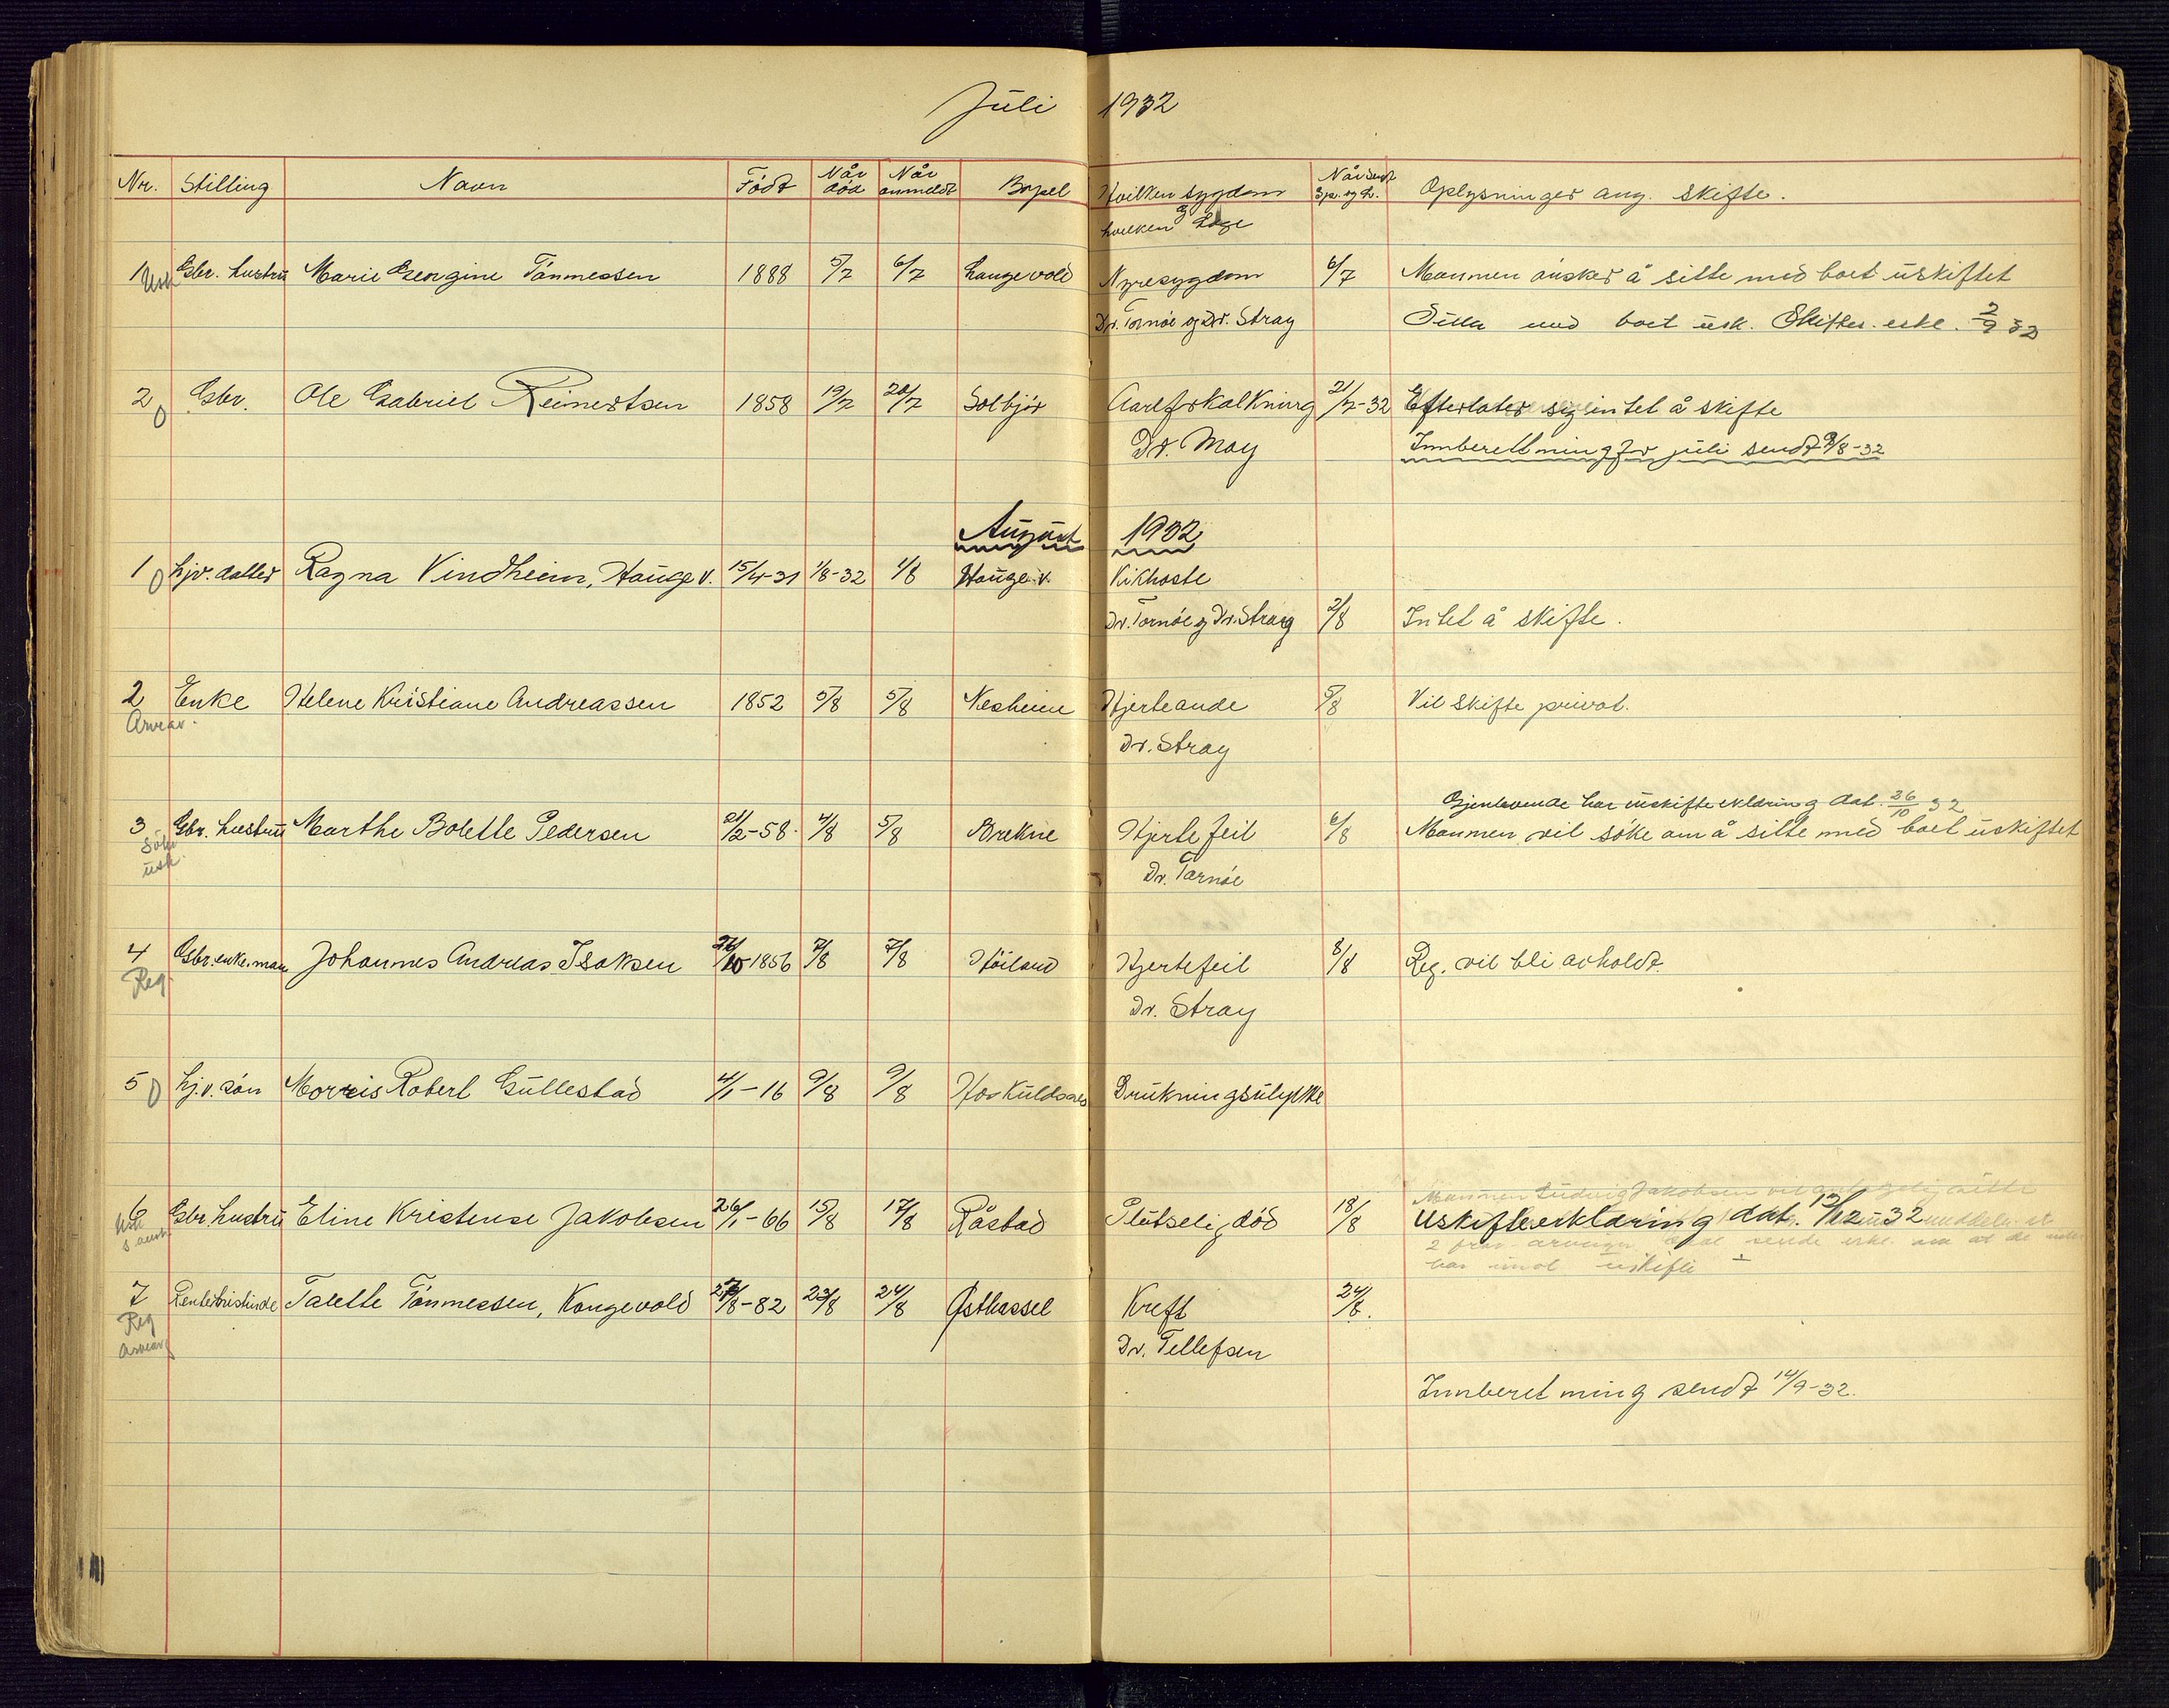 Juli 1932
Nr. Stilling Navn Født Når død Når anmeldt Bopel Hvilken sygdom Når sendt Spr. og L. Oplysninger ang. skifte.
og hvilken Læge
1 Gbr. hustru Marie Georgine Tönnessen 1888 5/7 6/7 Langevold Nyresygdom 6/7 Mannen önsker å sitte med boet uskiftet
Usk
Dr. Tornöe og Dr. Stray Sitta med boet usk. Skiftes. erkl. 2/9 32
2 Gbr. Ole Gabriel Reinertsen 1858 19/7 20/7 Solbjör Aarefrskalkning 21/7-32 Efterlater sig intet å skifte
0 Dr. May Innberettning for juli sendt 9/8-32
August 1932
1 hjv. datter Ragna Vindheim, Hauge v. 15/4-31 1/8-32 1/8 Hauge v. Kikhoste
0 Dr. Tornöe og Dr. Stray 2/8 Intet å skifte.
2 Enke Helene Kristiane Andreassen 1852 5/8 5/8 Nesheim Hjerteande 5/8 Vil skifte privat.
Arveav.
Dr. Stray
Gjenlevende har uskifteerklæring dat. 26/10 32
3 Gbr. hustru Marthe Bolette Pedersen 21/2-58. 4/8 5/8 Brekne Hjertefeil 6/8 Mannen vil söke om å sitte med boet uskiftet
Söke
usk.
Dr. Tornöe
4 Gbr. enkeman Johannes Andreas Isaksen 10 1856 7/8 7/8 Höiland Hjertefeil 8/8 Reg. vil bli avholdt.
Reg.
Dr. Stray
5 hj.v. sön Morris Robert Gullestad 4/1-16 9/8 9/8 Hoskuldsnes Drukningsulykke
0
Mannen Ludvig Jakobsen vil antagelig sitte
6 Gbr. hustru Eline Kristense Jakobsen 26/1-66 15/8 17/8 Råstad Plutselig död 18/8 Uskifteerklæring dat. 12-32 meddeler at
Usk
2 arvinger skal sende erkl. om at de
har imot uskifte
7 Rentierinde Talette Tönnessen, Kongevold 8-82 23/8 24/8 Østhassel Kreft 24/8.
Reg
arveav
Dr. Tellefsen
Innberetning sendt 14/9-32.